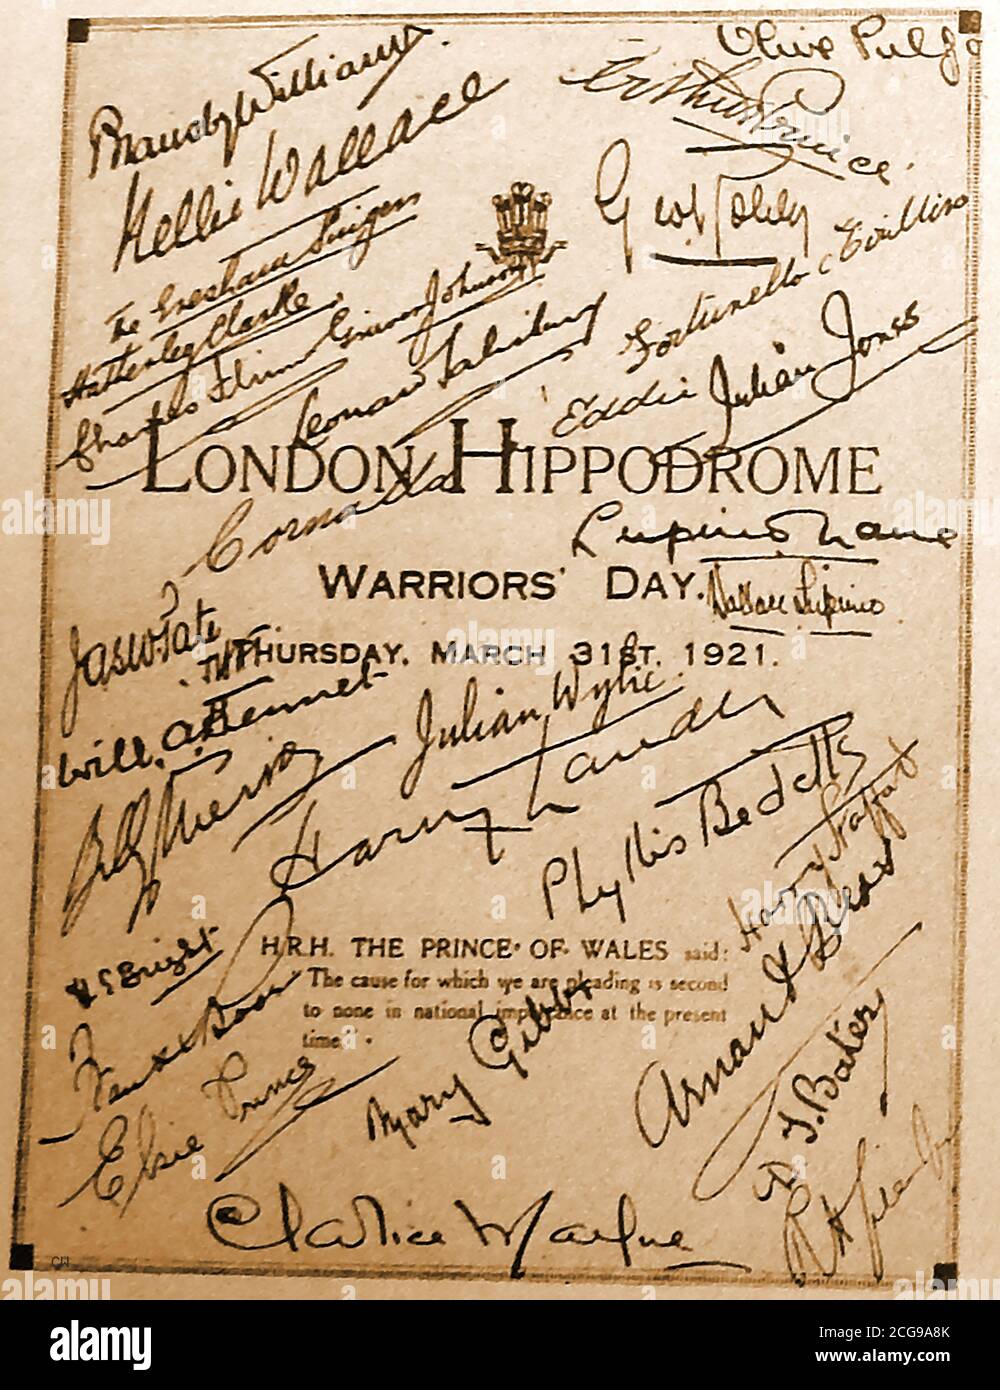 Olive
Bransby Williams.
Arthur Prince.
Nellie Wallace
Geo. Robey
The Gresham Singers
Fortunello & Cirillino
Hatherley Clarke
Charles
Leonard Salisbury
Eddie Julian Jones
LONDON HIPPODROME
Cornalla
Lupino Lane
WARRIORS' DAY.
Wallace Lupino
Jas W. Tate
THURSDAY, MARCH 31ST. 1921.
Will. A. Bennet
Julian Wylie
Billy Merson
Harry Lauder
Phyllis Bedells
Harry
H.R.H. THE PRINCE OF WALES said:
The cause for which we are pleading is second
to none in national importance at the present
time.
Elsie Prince
Mary Gibbs
Arnaud
T. Baker
Clarice Mayne
CW
alamy
alamy
Image ID: 2CG9A8K
www.alamy.com